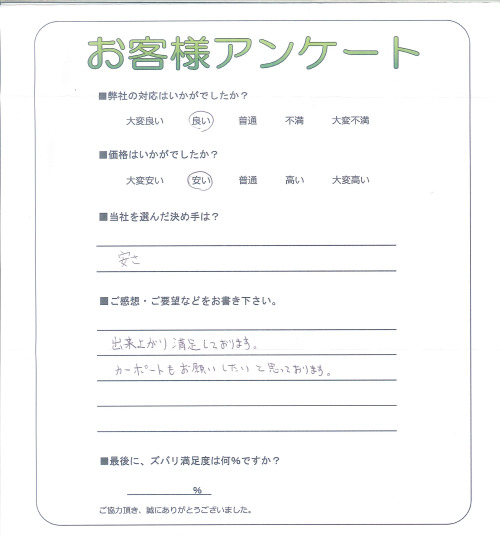 お客様アンケート
■弊社の対応はいかがでしたか？
大変良い 良い 普通 不満 大変不満
■価格はいかがでしたか？
大変安い 安い 普通 高い 大変高い
■当社を選んだ決め手は？
安さ
■ご感想・ご要望などをお書き下さい。
出来上がり満足しております。
カーポートもお願いしたいと思っております。
■最後に、ズバリ満足度は何%ですか？
%
ご協力頂き、誠にありがとうございました。